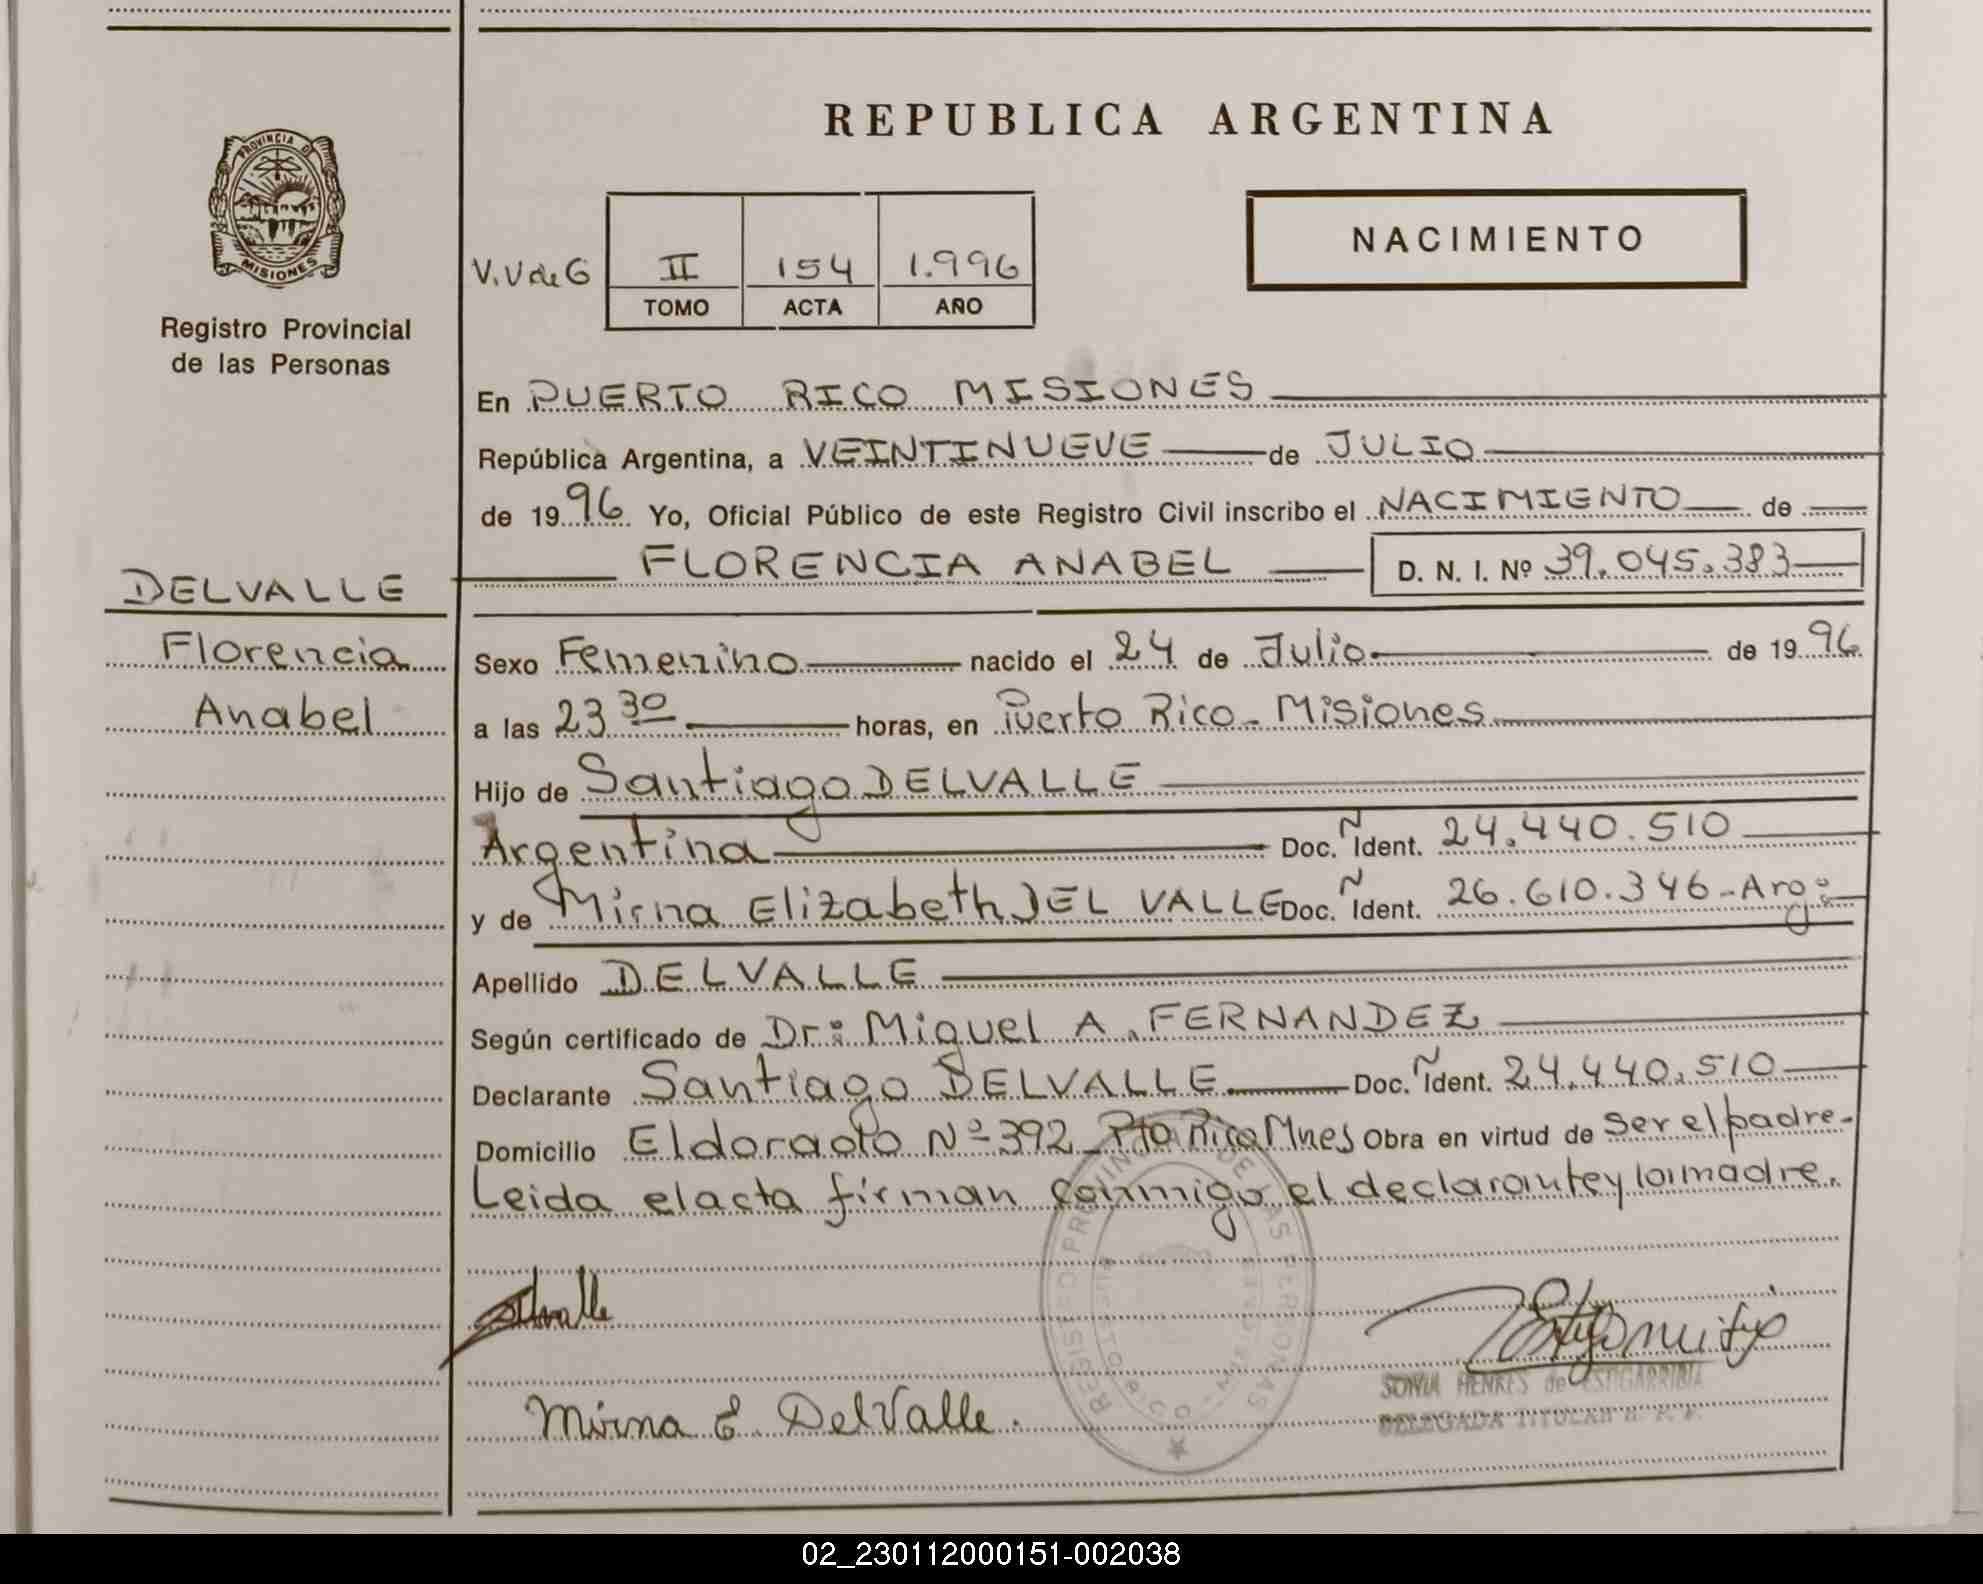 REPUBLICA ARGENTINA
PROVINCIA DE
MISIONES
Registro Provincial
de las Personas
V.V de G
II 154 1.996
TOMO ACTA AÑO
NACIMIENTO
En PUERTO RICO MISIONES
República Argentina, a VEINTINUEVE de JULIO
de 1996 Yo, Oficial Público de este Registro Civil inscribo el NACIMIENTO de
FLORENCIA ANABEL D. N. I. Nº 39.045.383
DELVALLE
Florencia
Anabel
Sexo Femenino nacido el 24 de Julio de 1996
a las 23 30 horas, en Puerto Rico - Misiones
Hijo de Santiago DELVALLE
Argentina Doc. Ñ Ident. 24.440.510
y de Mirna Elizabeth DEL VALLE Doc. Ñ Ident. 26.610.346 - Arg:
Apellido DELVALLE
Según certificado de Dr: Miguel A. FERNANDEZ
Declarante Santiago DELVALLE Doc. Ñ Ident. 24.440.510
Domicilio Eldorado Nº 392 Pto Rico Mnes Obra en virtud de ser el padre -
Leida el acta firman conmigo el declarante y la madre.
Delvalle
Mirna E. DelValle.
REGISTRO PROVINCIAL DE LAS PERSONAS
PUERTO RICO - MISIONES
SONIA HENKES de ESTIGARRIBIA
DELEGADA TITULAR R. P. P.
02_230112000151-002038